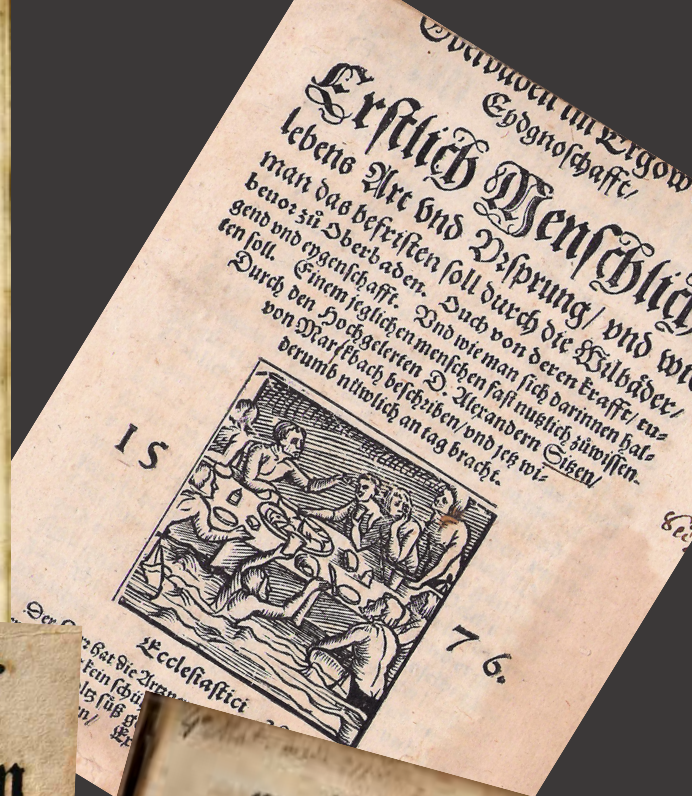 Oberbaden im Ergow
Eydgnoschafft/
Erstlich Menschlich
lebens Art vnd Vrsprung/ vnd wi
man das befristen soll durch die Wilbäder/
beuor zů Oberbaden. Ouch von deren krafft/ tu-
gend vnd eygenschafft. Vnd wie man sich darinnen hal-
ten soll. Einem jeglichen menschen fast nutzlich zůwissen.
Durch den Hochgelerten D. Alexandern Sitzen/
von Marckbach beschriben/ vnd jetz wi-
derumb nüwlich an tag bracht.
15 76.
Ecclesiastici
hat die
kein
süß